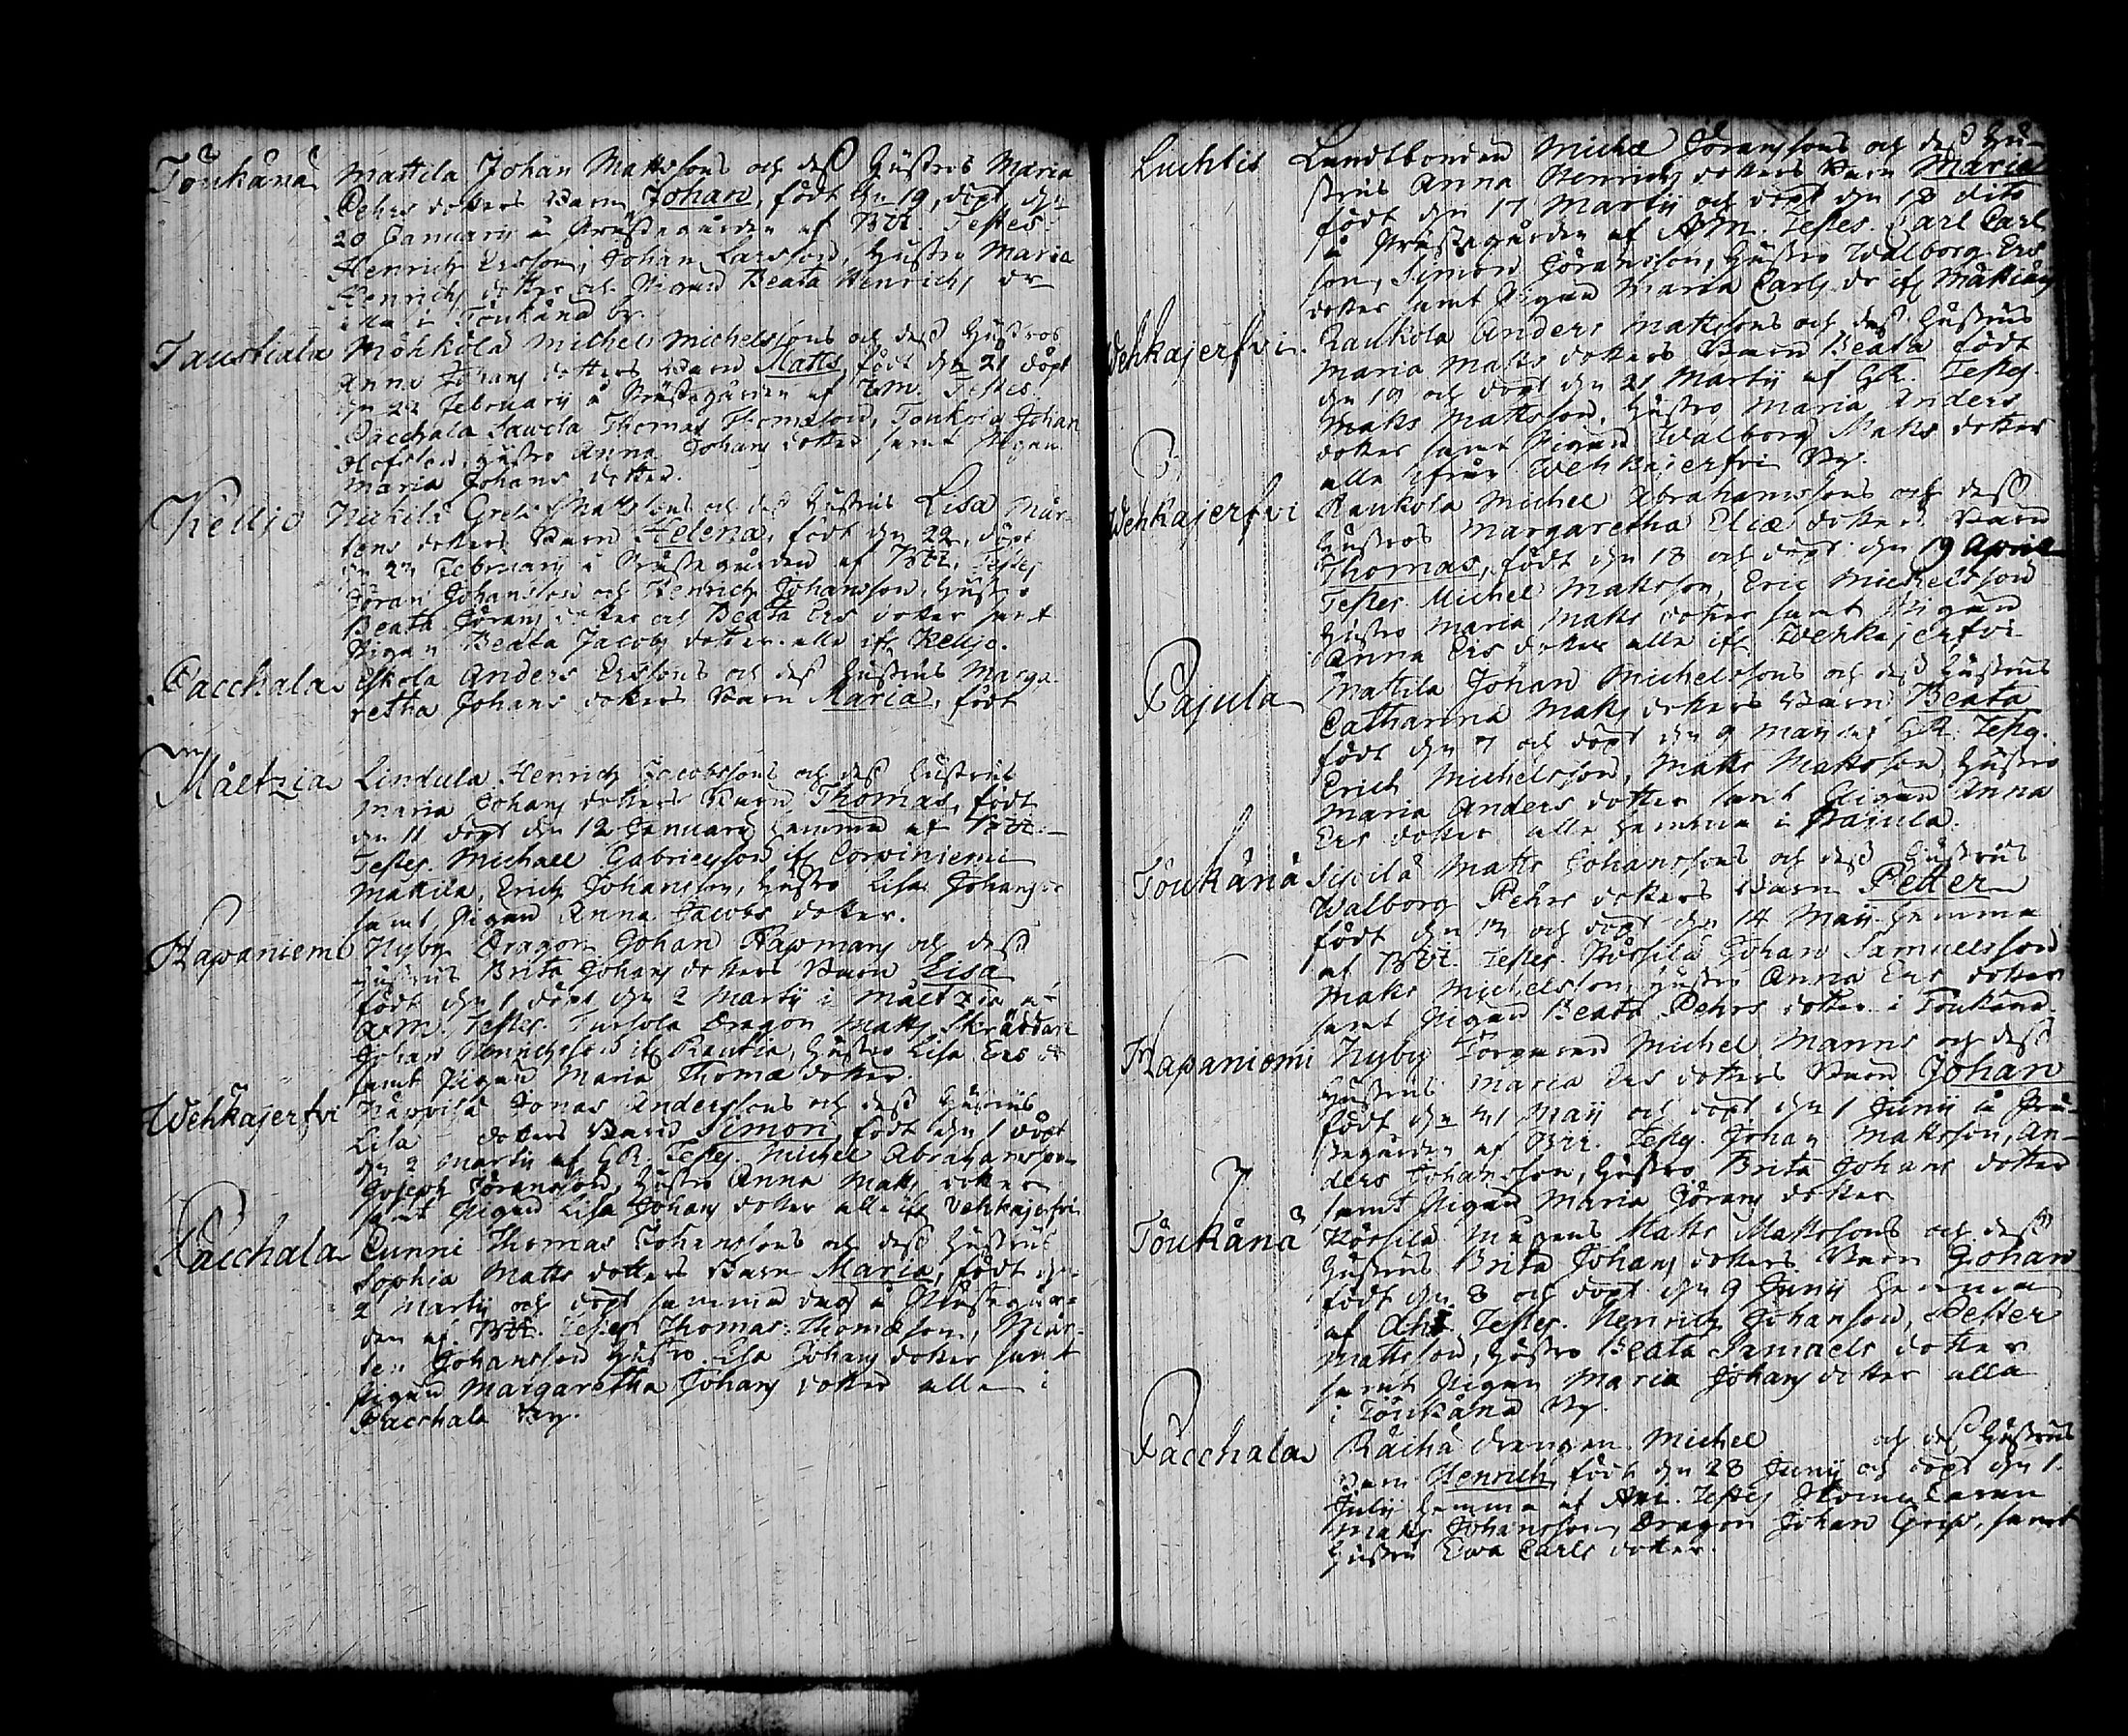 Toukåna Mattila Johan Mattssons och dess Hustrus Maria
Pehrs dotters Barn Johan, födt den 19, döpt den
20 January i Prästegården af Testes.
Henrich Ersson, Johan Larsson, Hustru Maria
Henrichs dotter och Pigan Beata Henrichs dr
alla i Toukåna by.
Taustiala Möhkölä Michel Michelssons och dess Hustros
Anna Johans dotters Barn Matts, födt den 21 döpt
den 22 February i Prästegården af Testes.
Pacchala Sawola Thomas Thomæson, Johan
Olofsson, Hustro Anna Johans dotter samt Pigan
Maria Johans dotter.
Kellio Mattssons och dess Hustrus Lisa Mår-
tens dotters Barn Helena, födt den 22, döpt
den February i Prästegården af Testes
Jöran Johansson och Henrich Johansson, Hustro
Beata Jörans dotter och Beata Ers dotter samt
Pigan Beata Jacobs dotter alla ifr Kellio.
Pacchala Eskola Anders Erssons och dess Hustrus Marga-
retha Johans dotters Barn Maria, födt
Måltzia Lindula Henrich Jacobssons och dess Hustrus
Maria Johans dotters Barn Thomas, födt
den 11 döpt den 12 January hemma af
Testes. Michael Gabrielsson ifr Corviniemi
Mattila, Erich Johansson, Hustro Lisa Johans dr
samt Pigan Anna Jacobs dotter.
Hapaniemi Nyby Dragon Johan Hapmans och dess
Hustrus Brita Johans dotters Barn Lisa
födt den 1 döpt den 2 Martij i Måltzia af
A.M. Testes. Dragon Matts Skräddare
Johan Henrichsson ifr Rautia, Hustro Lisa Ers dr
samt Pigan Maria Thomæ dotter.
Wehkajerfvi Jonas Anderssons och dess Hustrus
Lisa dotters Barn Simon, födt den 1 döpt
den 2 Martij af G.R. Testes. Michel Abrahamsson
Joseph Jöransson, Hustro Anna Matts dotter
samt Pigan Lisa Johans dotter alla ifr Vehkajerfvi
Pacchala Cunni Thomas Johanssons och dess Hustrus
Sophia Matts dotters Barn Maria, födt den
2 Martij och döpt samma dag i Prästegår-
den af Testes Thomas Thomæson, Mår-
ten Johansson Hustro Lisa Johans dotter samt
Pigan Margaretha Johans dotter alla i
Pacchala By.
Luchtis Landtbonden Michæ Jöranssons och dess Hu-
strus Anna Henrichs dotters Barn Maria
födt den 17 Martij och döpt den 18 dito
i Prästegården af A.M. Testes. Carl Carl-
son, Simon Jöransson, Hustro Walborg Ers
dotter samt Pigan Maria Carls dr ifr
Wehkajerfvi Raukola Anders Mattssons och dess Hustrus
Maria Matts dotters Barn Beata födt
den 19 och döpt den 21 Martij af G.R. Testes.
Matts Mattsson, Hustro Maria Anders
dotter samt Pigan Walborg Matts dotter
alla ifrån Wehkajerfvi By.
Wehkajerfvi Raukola Michel Abrahamssons och dess
Hustros Margaretha Eliæ dotters Barn
Thomas, födt den 18 och döpt den 19 April
Testes. Michel Mattsson, Eric Michelsson
Hustro Maria Matts dotter samt Pigan
Anna Ers dotter alla ifr Wehkajerfvi
Pajula Mattila Johan Michelssons och dess Hustrus
Catharina Matts dotters Barn Beata
födt den 7 och döpt den 9 Maij af G.R. Testes.
Erich Michelsson, Matts Mattsson, Hustro
Maria Anders dotter samt Pigan Anna
Ers dotter alla hemma i Pajula.
Toukåna Matts Johanssons och dess Hustrus
Walborg Pehrs dotters Barn Petter
födt den 13 och döpt den 14 Maij hemma
af Testes. Johan Samuelsson
Matts Michelsson, Hustro Anna Ers dotter
samt Pigan Beata Pehrs dotter i Toukåna
Hapaniemi Nyby Torparen Michel Manns och dess
Hustrus Maria Ers dotters Barn Johan
födt den 31 Maij och döpt den 1 Junij i Prä-
stegården af Testes. Johan Mattsson, An-
ders Johansson, Hustro Brita Johans dotter
samt Pigan Maria Jörans dotter
Toukåna Matts Mattssons och dess
Hustrus Brita Johans dotters Barn Johan
födt den 8 och döpt den 9 Junij hemma
af Testes. Henrich Johansson, Petter
Mattsson, Hustro Beata Samuels dotter
samt Pigan Maria Johans dotter alla
i Toukåna By.
Pacchala Räihä drengen Michel och dess Hustrus
Barn Henrich, födt den 28 Junij och döpt den 1.
Julij hemma af Testes
Matts Johansson, Dragon Johan samt
Hustru Ewa Carls dotter.